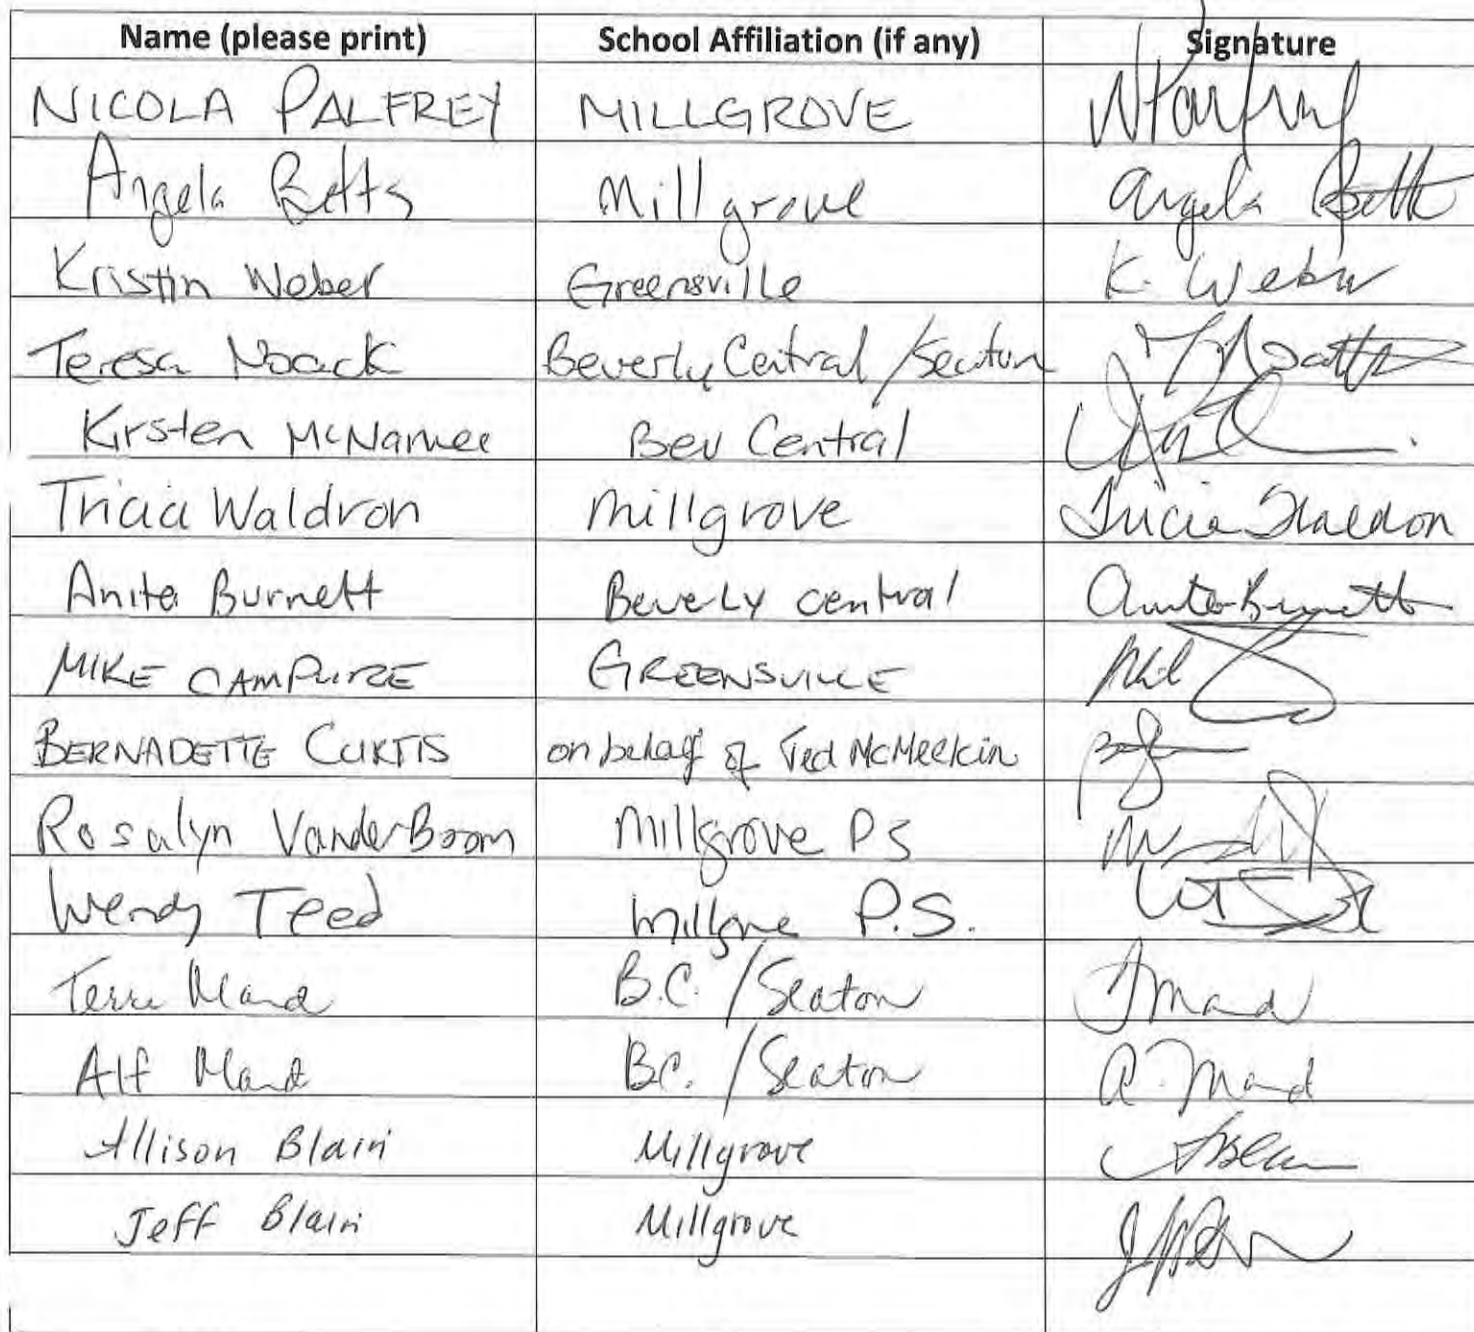 Name (please print) School Affiliation (if any) Signature
NICOLA PALFREY MILLGROVE
Angela Betts Millgrove Angela Betts
Kristin Weber Greensville K. Weber
Teresa Noack Beverly Central /Seaton
Kirsten McNamee Bev Central
Tricia Waldron Millgrove Tricia Waldron
Anita Burnett Beverly central Anita Burnett
MIKE GREENSVILLE
BERNADETTE CURTIS on behalf of Ted McMeekin
Rosalyn VanderBoom Millgrove PS
Wendy Teed P.S.
Terri Mand B.C. /Seaton T Mand
Alf Mand B.C. /Seaton A. Mand
Allison Blain Millgrove
Jeff Blain Millgrove